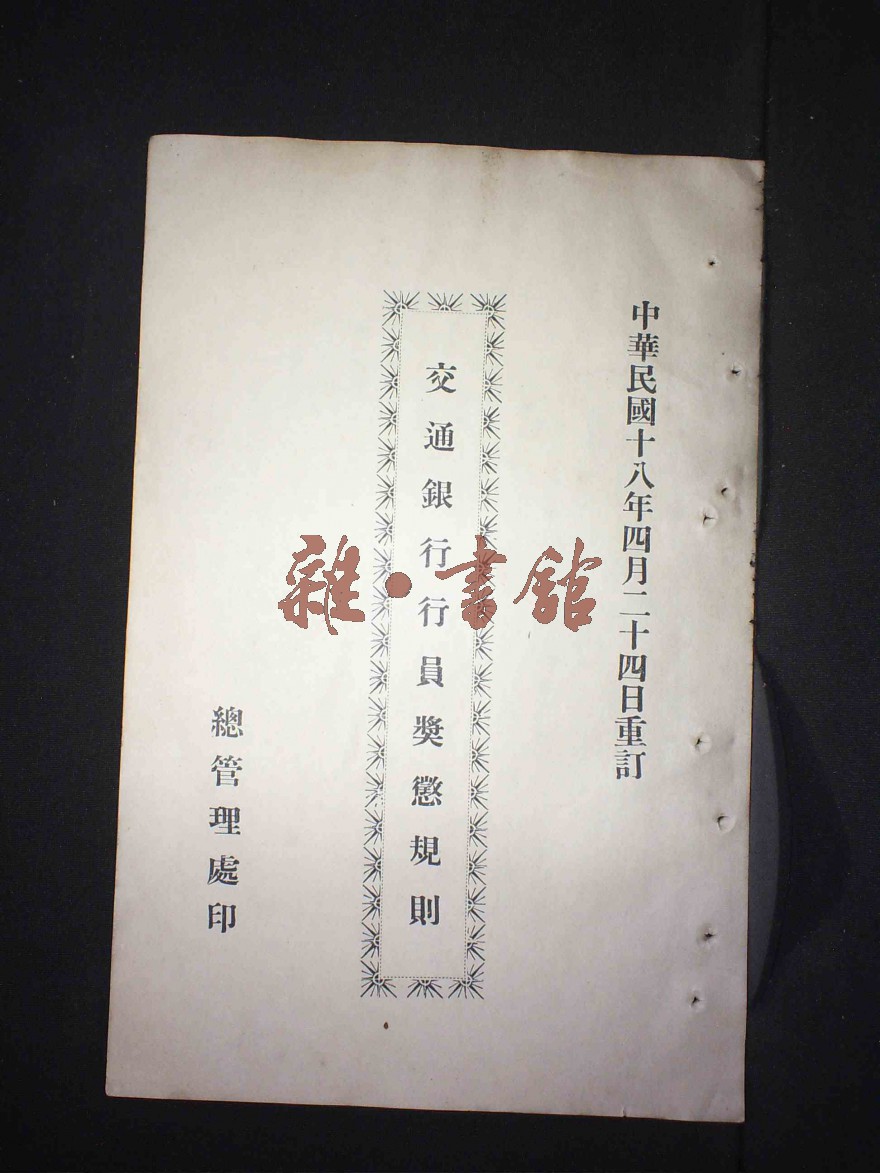 中華民國十八年四月二十四日重訂
交通銀行行員獎懲規則
總管理處印
雜·書館